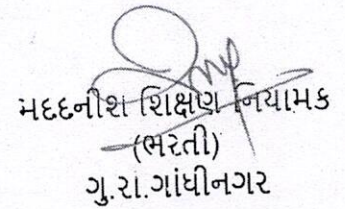 મદદનીશ શિક્ષણ નિયામક
(ભરતી)
ગુ.રા.ગાંધીનગર